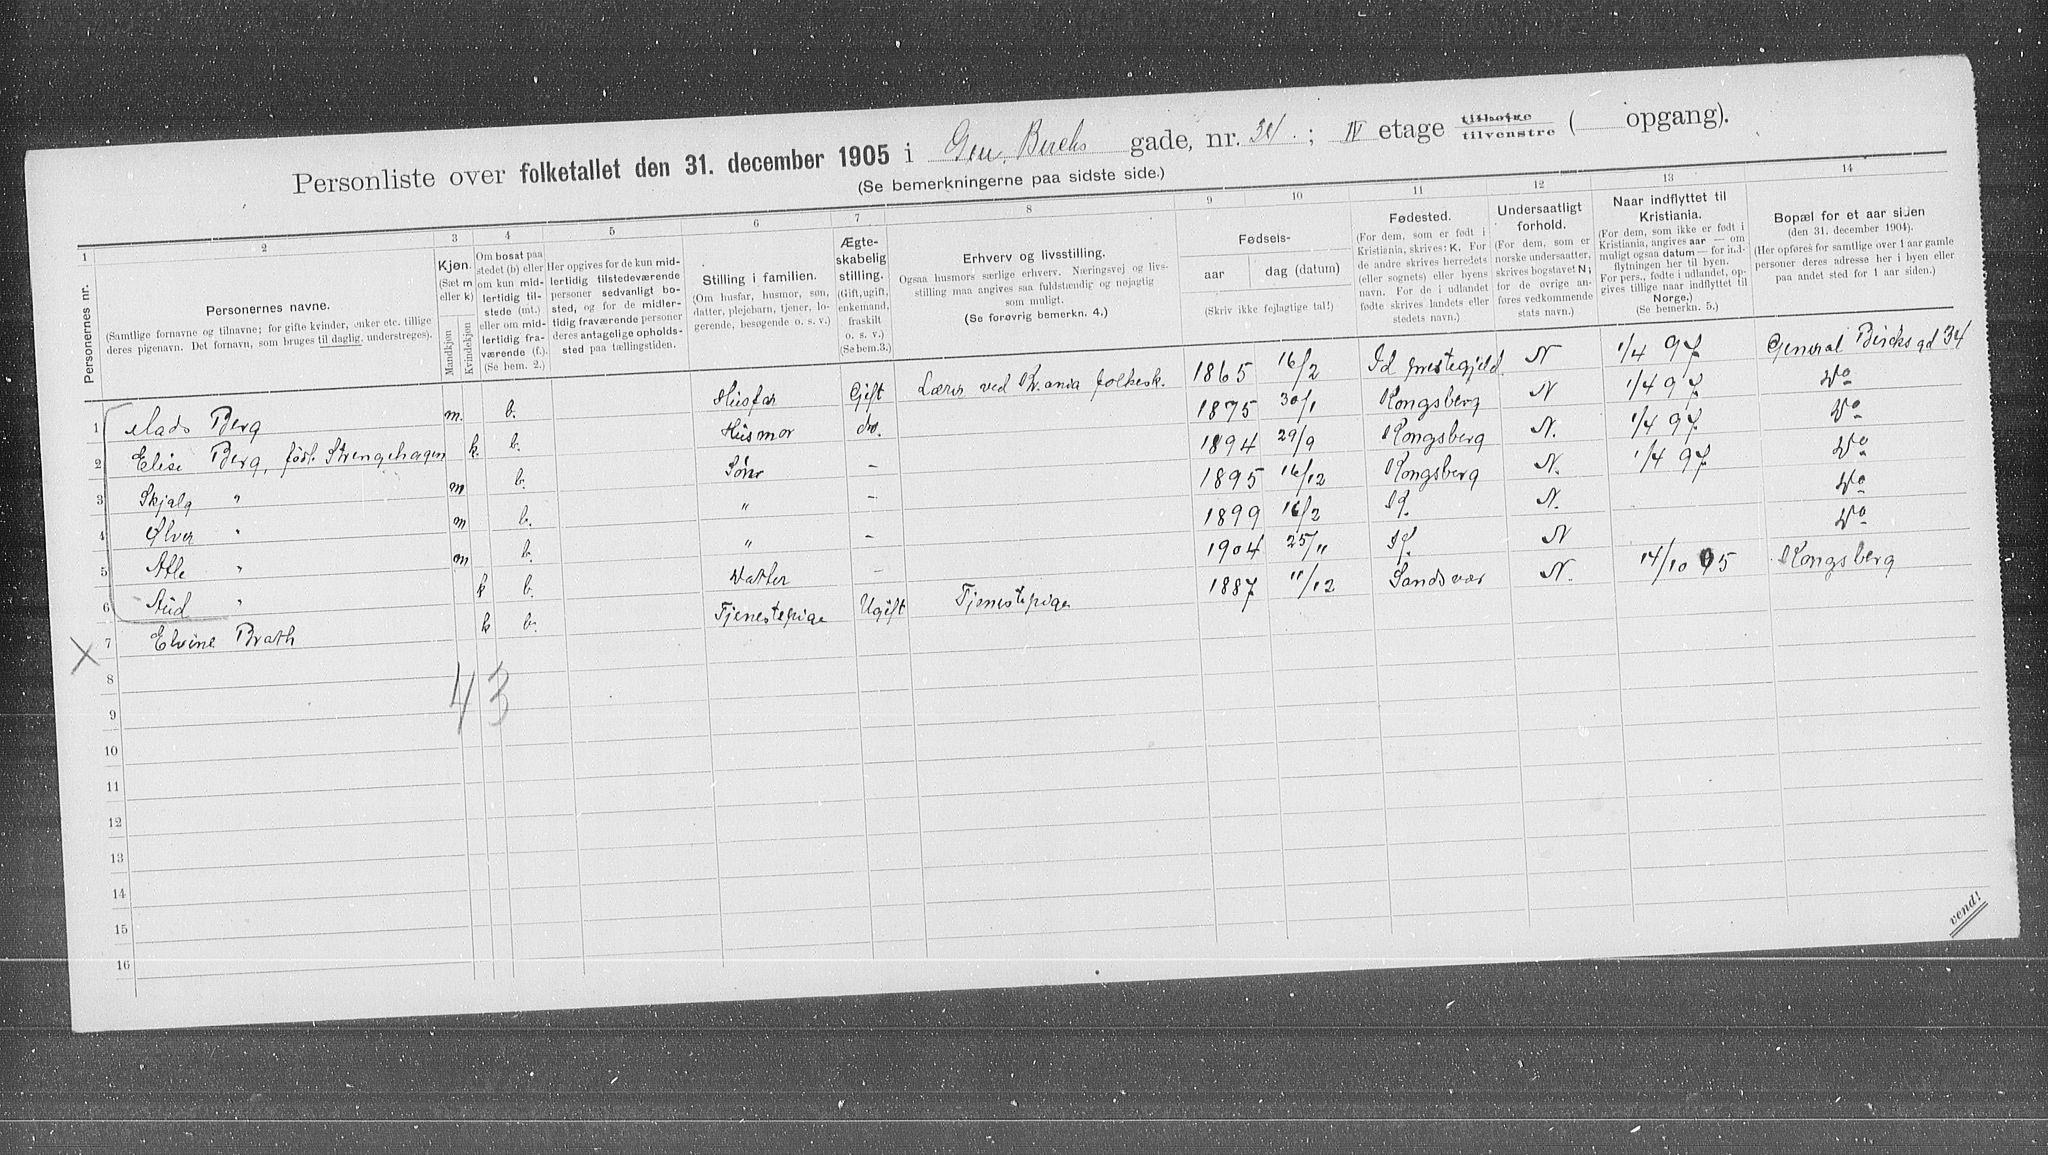 Personliste over folketallet den 31. december 1905 i Gen. Bircks gade, nr. 34. ; IV etage tilhøire tilvenstre ( opgang).
(Se bemerkningerne paa sidste side.)
1 2 3 4 5 6 7 8 9 10 11 12 13 14
Personernes nr.
Personernes navne.
(Samtlige fornavne og tilnavne; for gifte kvinder, enker etc. tillige
deres pigenavn. Det fornavn, som bruges til daglig, understreges).
Kjøn.
(Sæt m
eller k)
Mandkjøn
Kvindekjøn
Om bosat paa
stedet (b) eller
om kun mid-
lertidig til-
stede (mt.)
eller om mid-
lertidig fra-
værende (f.)
(Se bem. 2.)
Her opgives for de kun mid-
lertidig tilstedeværende
personer sedvanligt bo-
sted, og for de midler-
tidig fraværende personer
deres antagelige opholds-
sted paa tællingstiden.
Stilling i familien.
(Om husfar, husmor, søn,
datter, plejebarn, tjener, lo-
gerende, besøgende o. s. v.)
Ægte-
skabelig
stilling.
(Gift, ugift,
enkemand,
fraskilt
o. s. v.)
(Se bem. 3.)
Erhverv og livsstilling.
Ogsaa husmors særlige erhverv. Næringsvej og livs-
stilling maa angives saa fuldstændig og nøjagtig
som muligt.
(Se forøvrig bemerkn. 4.)
Fødsels-
aar
dag (datum)
(Skriv ikke fejlagtige tal!)
Fødested.
(For dem, som er født i
Kristiania, skrives: K. For
de andre skrives herredets
(eller sognets) eller byens
navn. For de i udlandet
fødte skrives landets eller
stedets navn.)
Undersaatligt
forhold.
(For dem, som er
norske undersaatter,
skrives bogstavet N;
for de øvrige an-
føres vedkommende
stats navn.)
Naar indflyttet til
Kristiania.
(For dem, som ikke er født i
Kristiania, angives aar — om
muligt ogsaa datum — for ind-
flytningen her til byen.
For pers., fødte i udlandet, op-
gives tillige naar indflyttet til
Norge.)
(Se bemerkn. 5.)
Bopæl for et aar siden
(den 31. december 1904).
(Her opføres for samtlige over 1 aar gamle
personer deres adresse her i byen eller
paa andet sted for 1 aar siden.)
1 Mads Berg m. b. Husfar Gift Lærer ved Kr.ania folkesk. 1865 16/2 Id prestegjeld N 1/4 97 General Bircks gd 34
2 Elise Berg, født Strengehagen k. b. Husmor do. 1875 30/1 Kongsberg N 1/4 97 Do
3 Skjalg " m b. Søn — 1894 29/9 Kongsberg N. 1/4 97 Do
4 Ølver " m b. " — 1895 16/12 Kongsberg N. 1/4 97 Do
5 Atle " m b. " — 1899 16/2 K. N. Do
6 Aud " k b. Datter — 1904 25/11 K. N Do
7 Elvine Brath k b. Tjenestepige Ugift Tjenestepige 1887 11/12 Sandsvær N. 14/10 05 Kongsberg
X
4 3
8
9
10
11
12
13
14
15
16
vend!